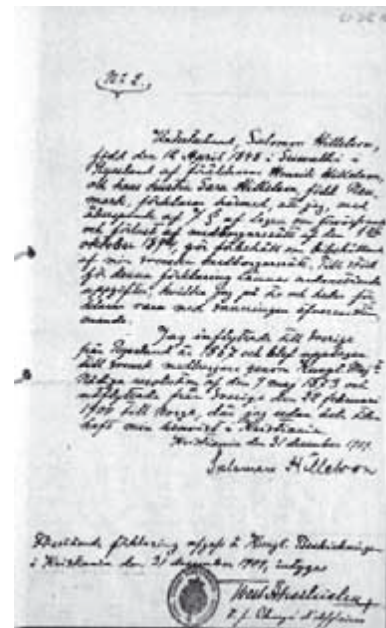 No 2.
Undertecknad, Salomon Hilleson,
född den 12 April 1848 i Suwalki i
Ryssland af föräldrarne Henrik Hilleson
och hans hustru Sara Hilleson, född Neu-
mark, förklarar härmed, att jag, med
åberopande af 7 § af lagen om förvärfvande
och förlust af medborgarrätt af den 1
oktober 1894, gör förbehåll om bibehållande
af min svenska medborgarrätt. Till stöd
för denna förklaring lämnas nedanstående
uppgifter, hvilka jag på och heder för-
klarar vara med sanningen öfverensstäm-
mande.
Jag inflyttade till Sverige
från Ryssland år 1867 och blef upptagen
till svensk medborgare genom Kungl. Maj:ts
Nådiga resolution af den 9 maj 1873 och
utflyttade från Sverige den 28 februari
1900 till Norge, där jag sedan dess
haft min hemvist i Kristiania.
Kristiania den 31 december 1909.
Salomon Hilleson
förklaring afgifven å Kungl. Beskickningen
i Kristiania den 31 december 1909, intygar
Chargé d'Affaires